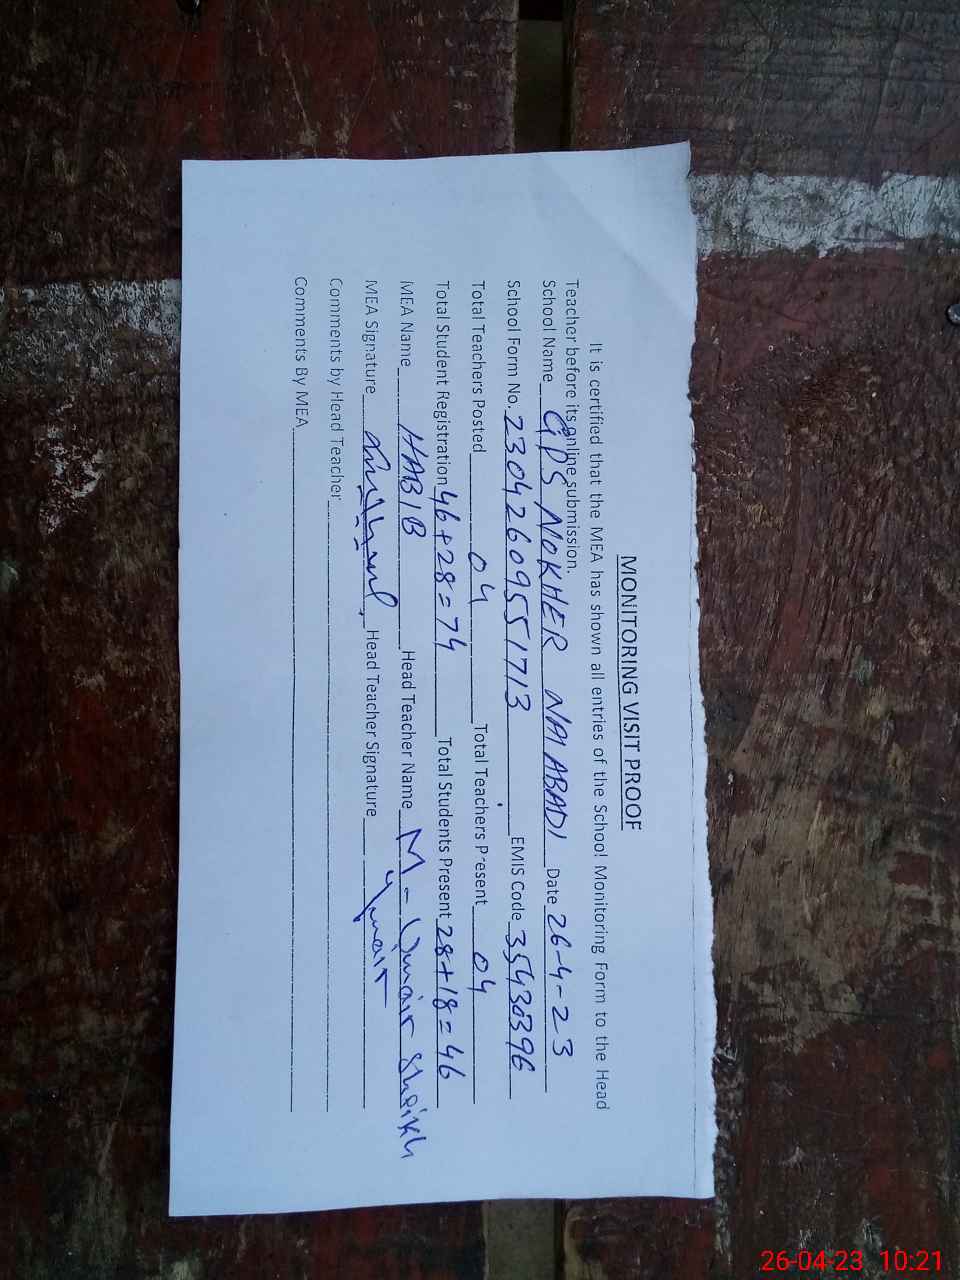 MONITORING VISIT PROOF
It is certified that the MEA has shown all entries of the School Monitoring Form to the Head
Teacher before its online submission.
School Name GPS NOKHER NAI ABADI Date 26-4-23
School Form No. 23042609551713 EMIS Code 35430396
Total Teachers Posted 04 Total Teachers Present 04
Total Student Registration 46+28=74 Total Students Present 28+18=46
MEA Name HABIB Head Teacher Name M-Umair Sheikh
MEA Signature Head Teacher Signature Umair
Comments by Head Teacher
Comments By MEA
26-04-23 10:21